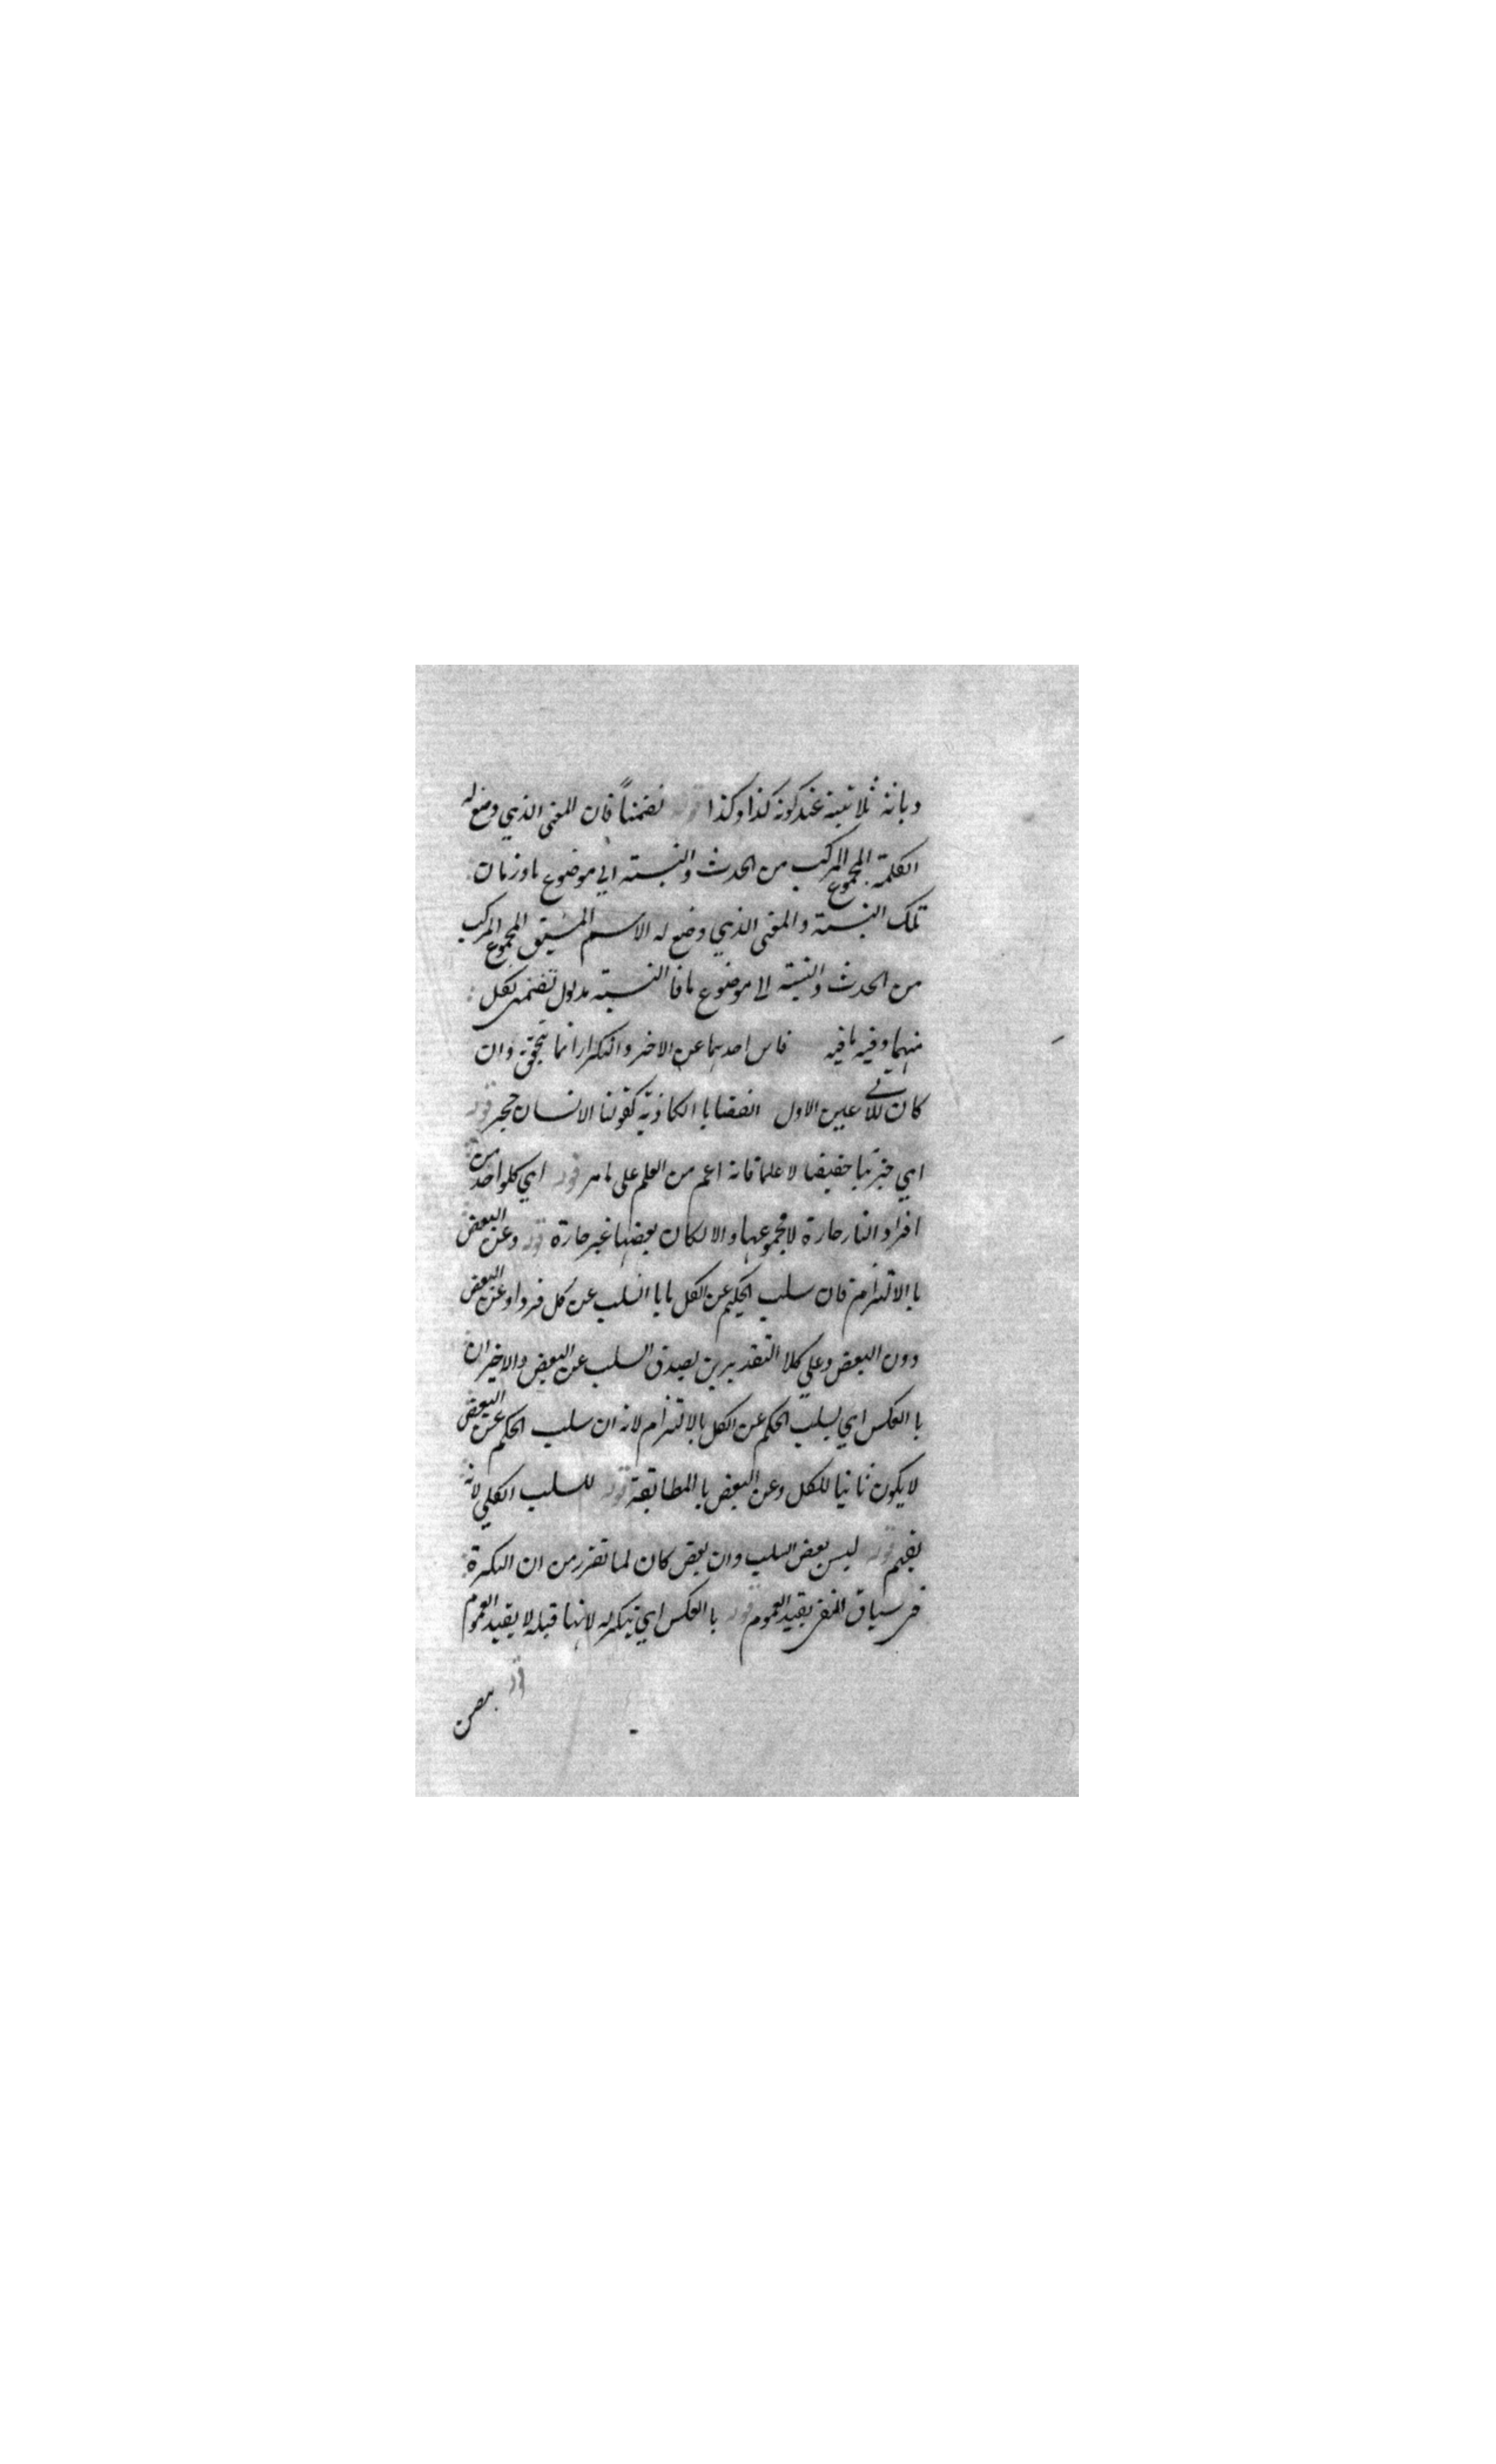 وبانه ثلاثيته عند كونه كذا وكذا قوله تضمناً فان المعنى الذي وضع له
الكلمة المجموع المركب من الحدث والنسبة الي موضوع ما وزمان
تلك النسبة والمعنى الذي وضع له الاسم المشتق المجموع المركب
من الحدث والنسبة الى موضوع ما فالنسبة مدلول تضمنى لكل
منهما وفيه ما فيه احدهما عن الاخر والتكرار انما يتحقق وان
كان للثاني عين الاول القضايا الكاذبة كقولنا الانسان حجر قوله
اي جزئيا حقيقيا لا علما فانه اعم من العلم على ما مر قوله اي كلواحد من
افراد النار حارة لا مجموعها والا لكان بعضها غير حارة قوله وعن البعض
باالالتزام فان سلب الحكم عن الكل اما باالسلب عن كل فرد او عن البعض
دون البعض وعلي كلا التقديرين يصدق السلب عن البعض والاخيران
باالعكس اي لسلب الحكم عن الكل بالالتزام لانه ان سلب الحكم عن البعض
لا يكون ثابتا للكل وعن البعض باالمطابقة قوله للسلب الكلي لانه
نقيم قوله ليس بعض السلب وان بعض كان لما تقرر من ان النكرة
فى سياق النفى يفيد العموم قوله باالعكس اي لانها قبله لا يفيد العموم
قوله